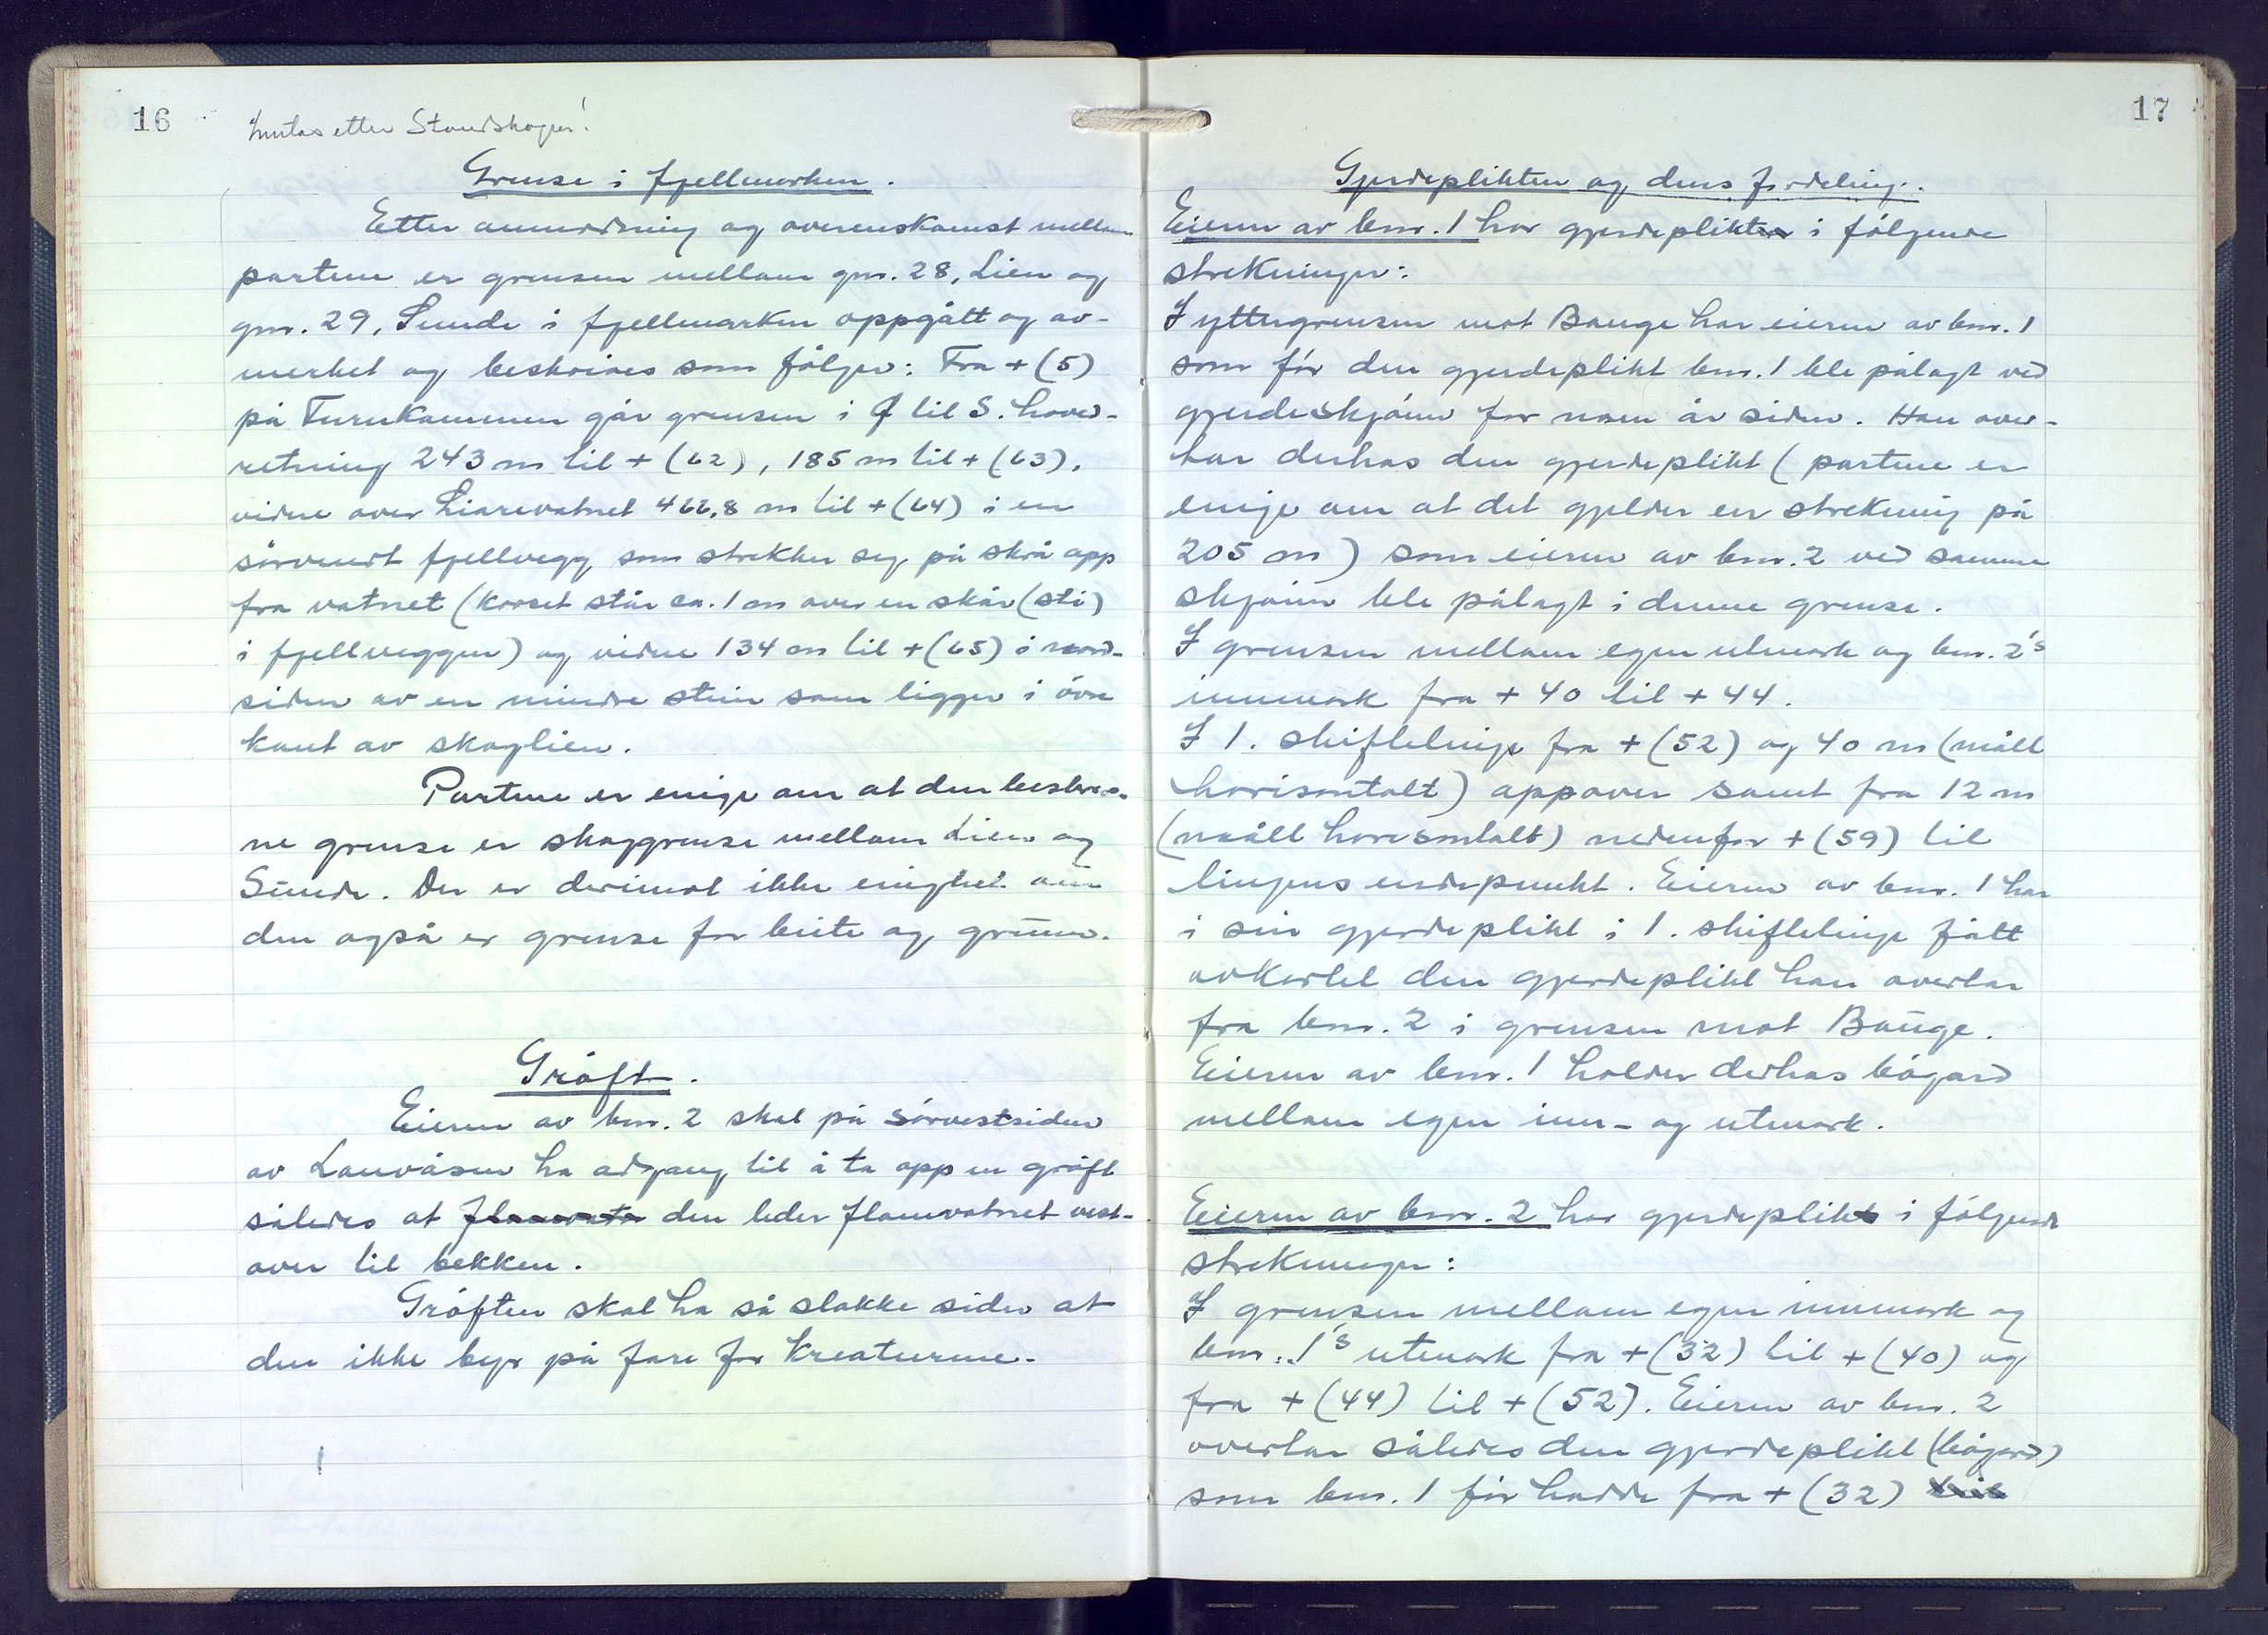 16
Inntas etter Standskogen!
Grense i fjellmarken.
Etter anmodning og overenskomst mellem
partene er grensen mellom gnr. 28, Lien og
gnr. 29, Sunde i fjellmarken oppgått og av-
merket og beskrives som fölger: Fra + (5)
på Turnkammen går grensen i S til S. hoved-
retning 243 m til + (62), 185 m til + (63),
videre over Liarevatnet 466,8 m til + (64) i en
sörvendt fjellvegg som strekker seg på skrå opp
fra vatnet (korset står ca. 1 m over en skår (sti)
i fjellveggen) og videre 134 m til + (65) i nord-
siden av en mindre stein som ligger i övre
kant av skoglien.
Partene er enige om at den beskrev-
ne grense er skoggrense mellom Lien og
Sunde. Der er derimot ikke enighet om
den også er grense for beite og grunn.
Gröft.
Eieren av bnr. 2 skal på sörvestsiden
av Lauvåsen ha adgang til å ta opp en gröft
således at flomvatn den leder flomvatnet vest-
over til bekken.
Gröften skal ha så slakke sider at
den ikke byr på fare for kreaturene.
17
Gjerdeplikten og dens fordeling.
Eieren av bnr. 1 har gjerdeplikten i fölgende
strekninger:
I yttergrensen mot Bauge har eieren av bnr. 1
som för den gjerdeplikt bnr. 1 ble pålagt ved
gjerdeskjönn for noen år siden. Han over-
tar derhos den gjerdeplikt (partene er
enige om at det gjelder en strekning på
205 m) som eieren av bnr. 2 ved samme
skjönn ble pålagt i denne grense.
I grensen mellom egen utmark og bnr. 2's
innmark fra + 40 til + 44.
I 1. skiftelinje fra + (52) og 40 m (målt
horisontalt) oppover samt fra 12 m
(målt horisontalt) nedenfor + (59) til
linjens endepunkt. Eieren av bnr. 1 har
i sin gjerdeplikt i 1. skiftelinje fått
avkortet den gjerdeplikt han overtar
fra bnr. 2 i grensen mot Bauge.
Eieren av bnr. 1 holder derhos bögard
mellom egen inn- og utmark.
Eieren av bnr. 2 har gjerdeplikt i fölgende
strekninger:
I grensen mellom egen innmark og
bnr. 1's utmark fra + (32) til + (40) og
fra + (44) til + (52). Eieren av bnr. 2
overtar således den gjerdeplikt (bögard)
som bnr. 1 för hadde fra + (32)